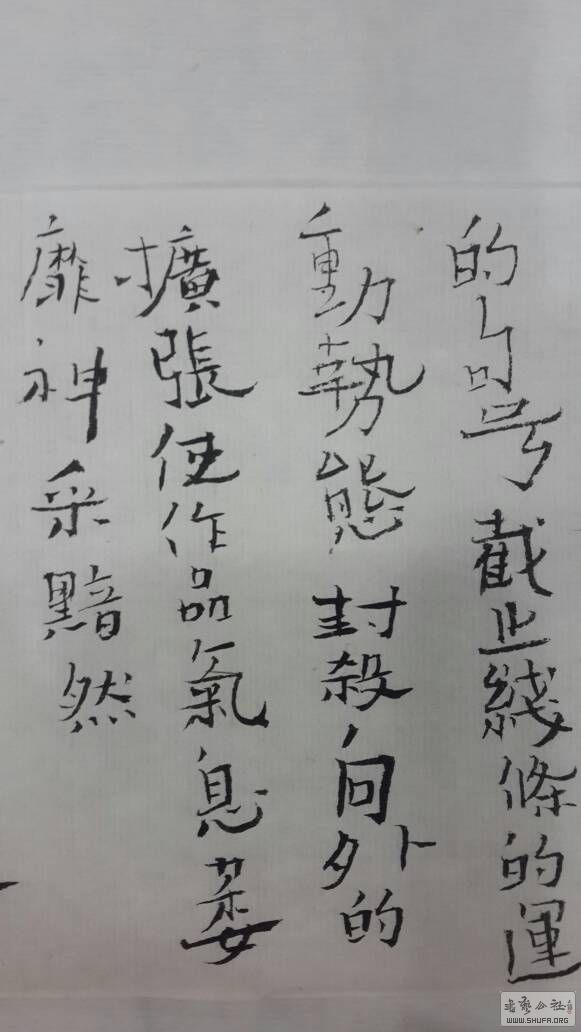 的句号截止綫條的運
動勢態封殺向外的
擴張使作品氣息萎
靡神采黯然
書藝公社
WWW.SHUFA.ORG